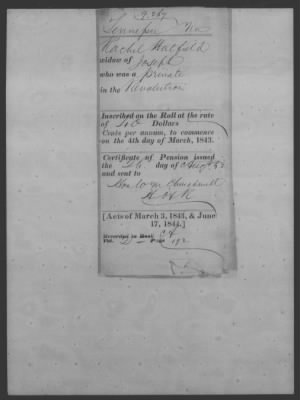 9.269
Tennessee
Rachel Hatfield
widow of Joseph
who was a Private
in the Revolution
Inscribed on the Roll at the rate
of 40 Dollars
Cents per annum, to commence
on the 4th day of March, 1843.
Certificate of Pension issued
the 26 day of
and sent to
Hon W m Churchwell
H of R
[Acts of March 3, 1843, & June
17, 1844.]
Recorded in Book
Vol. Page 192